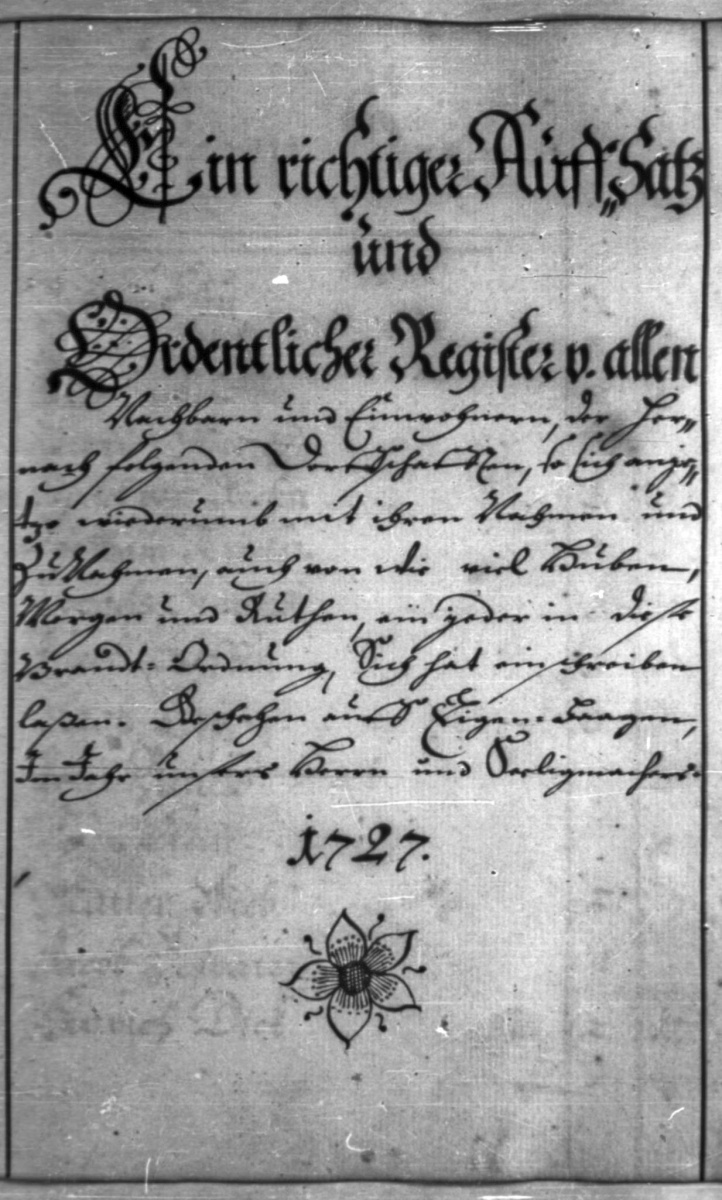 Ein richtiger Auff„Satz
und
Ordentlicher Register v. allen
Nachbarn und Einwohnern, der her„
nach folgenden Dorfschafften, so sich anje„
tzo wiederumb mit ihren Nahmen und
ZuNahmen, auch von wie viel Huben,
Morgen und Ruthen, ein jeder in diese
Brandt-Ordnung, Sich hat einschreiben
laßen. Geschehen auff Eigen-Laagen,
Im Jahr unsers Herrn und Seeligmachers
1727.